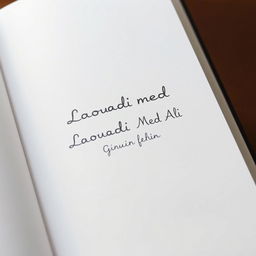 Laouadi med
Laouadi Med Ali
Ginuin fehin